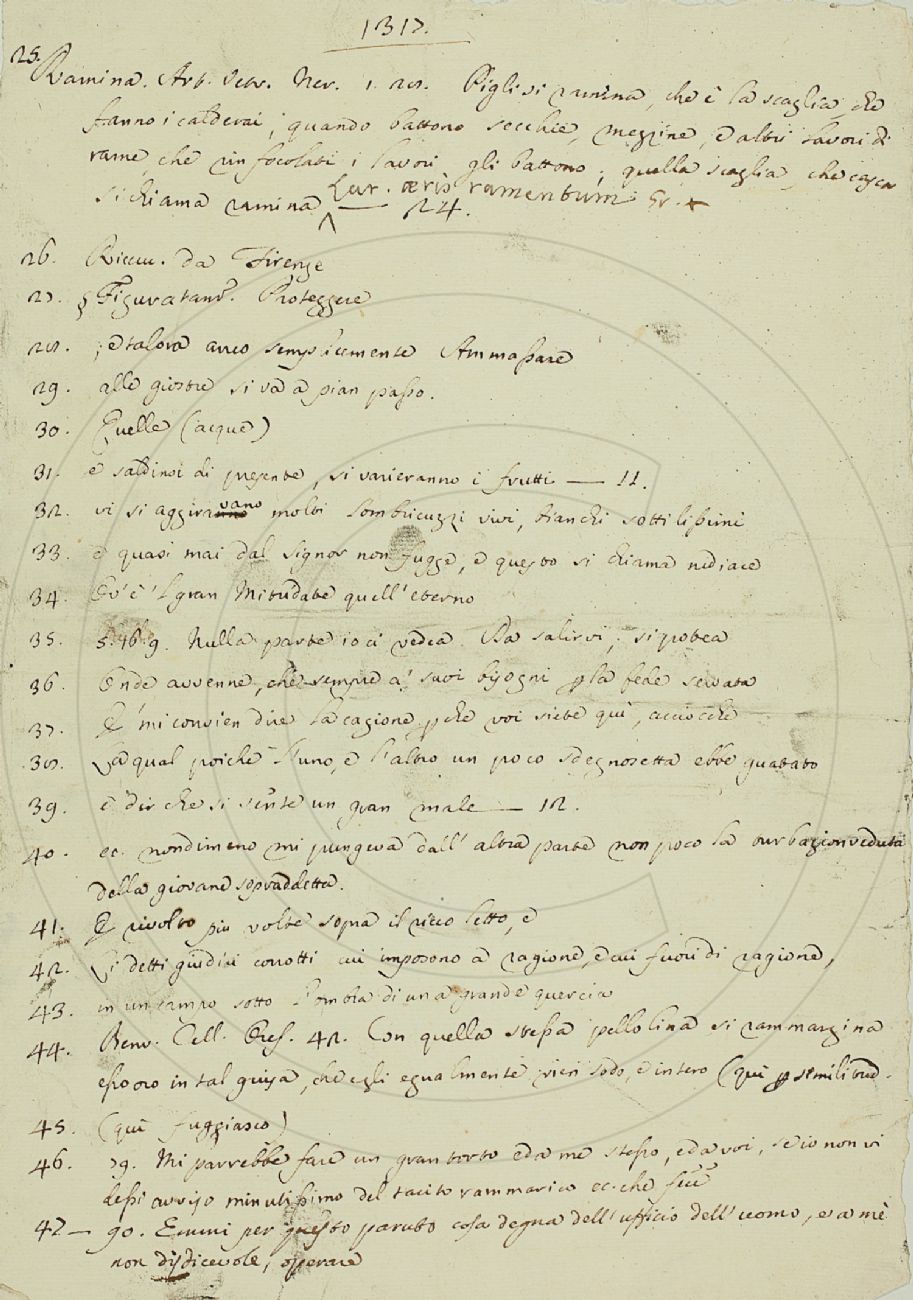 1317.
25.
Ramina. Art. Vetr. Ner. 1. 20. Piglisi ramina, che è la scaglia, che
fanno i calderai, quando battono secchie, mezzine, e altri lavori di
rame, che rinfocolati i lavori gli battono; quella scaglia, che casca
si chiama ramina — 24.
Lat. æris ramentum Gr. +
26. Ricciu. da Firenze
27. § Figuratam. Proteggere
28. ; e talora anco semplicemente Ammassare
29. alle giostre si va a pian passo.
30. Quelle (acque)
31. e saldinsi di presente, si varieranno i frutti — 11.
32. vi si aggiravano molti lombricuzzi vivi, bianchi sottilissimi
33. e quasi mai dal signor non fugge, e questo si chiama nidiace
34. Ov' è 'l gran Mitridate quell' eterno
35. 5. 46. 9. Nulla parte io ci vedea Da salirvi, si potea
36. Onde avvenne, che sempre a' suoi bisogni p la fede servata
37. E' mi convien dire la cagione, pche voi siete quì, acciocchè
38. La qual poichè l'uno, e l'altro un poco sdegnosetta ebbe guatato
39. è dir che si sente un gran male — 12.
40. ec. nondimeno mi pungeva dall' altra parte non poco la turbazion veduta
della giovane sopraddetta.
41. E rivolto più volte sopra il ricco letto, e
42. Li detti giudici corrotti cui imposono a ragione, e cui fuori di ragione,
43. in un campo sotto l'ombra di una grande quercia
44. Benv. Cell. Oref. 42. Con quella stessa pallolina si rammargina
esso oro in tal guisa, che egli egualmente vien sodo, e intero (quì p similitud.
45. (quì fuggiasco)
46. 79. Mi parrebbe fare un gran torto e da me stesso, e da voi, se io non vi
dessi avviso minutissimo del tacito rammarico ec. che feci
47 — 90. Emmi per questo paruto cosa degna dell' ufficio dell' uomo, e a me
non disdicevole, operare